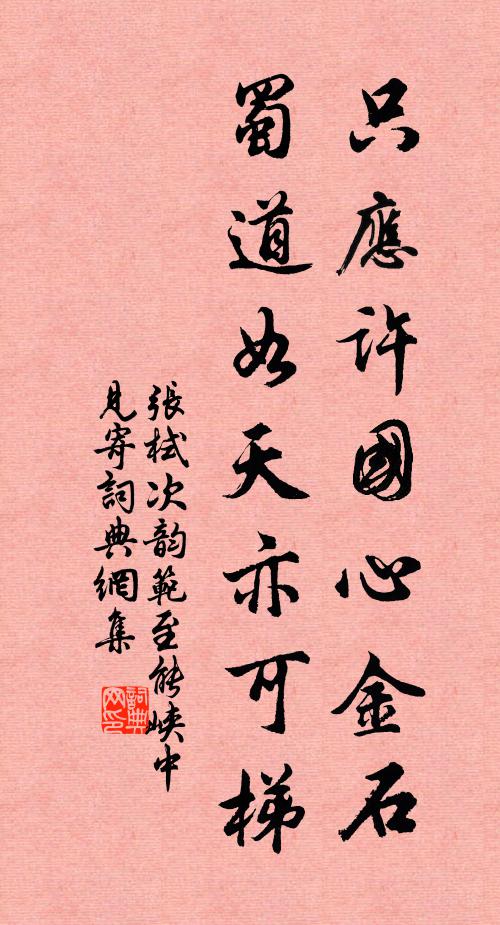 只應許國心金石
蜀道如天亦可梯
張栻次韵範至能峽中
見寄詞典網集
詞典网印